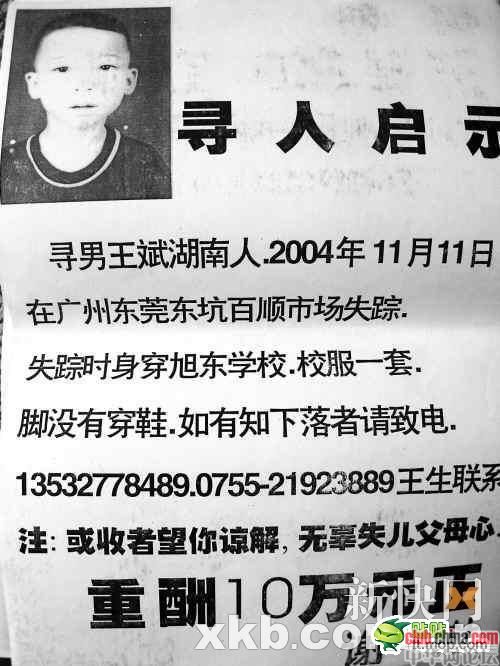 寻人启示
寻男王斌湖南人.2004年11月11日
在广州东莞东坑百顺市场失踪.
失踪时身穿旭东学校.校服一套.
脚没有穿鞋.如有知下落者请致电.
13532778489.0755-21923889王生联系
注:或收者望你谅解,无辜失儿父母心.
重酬10万元正
新快网
xkb.com
club.china.com
谢